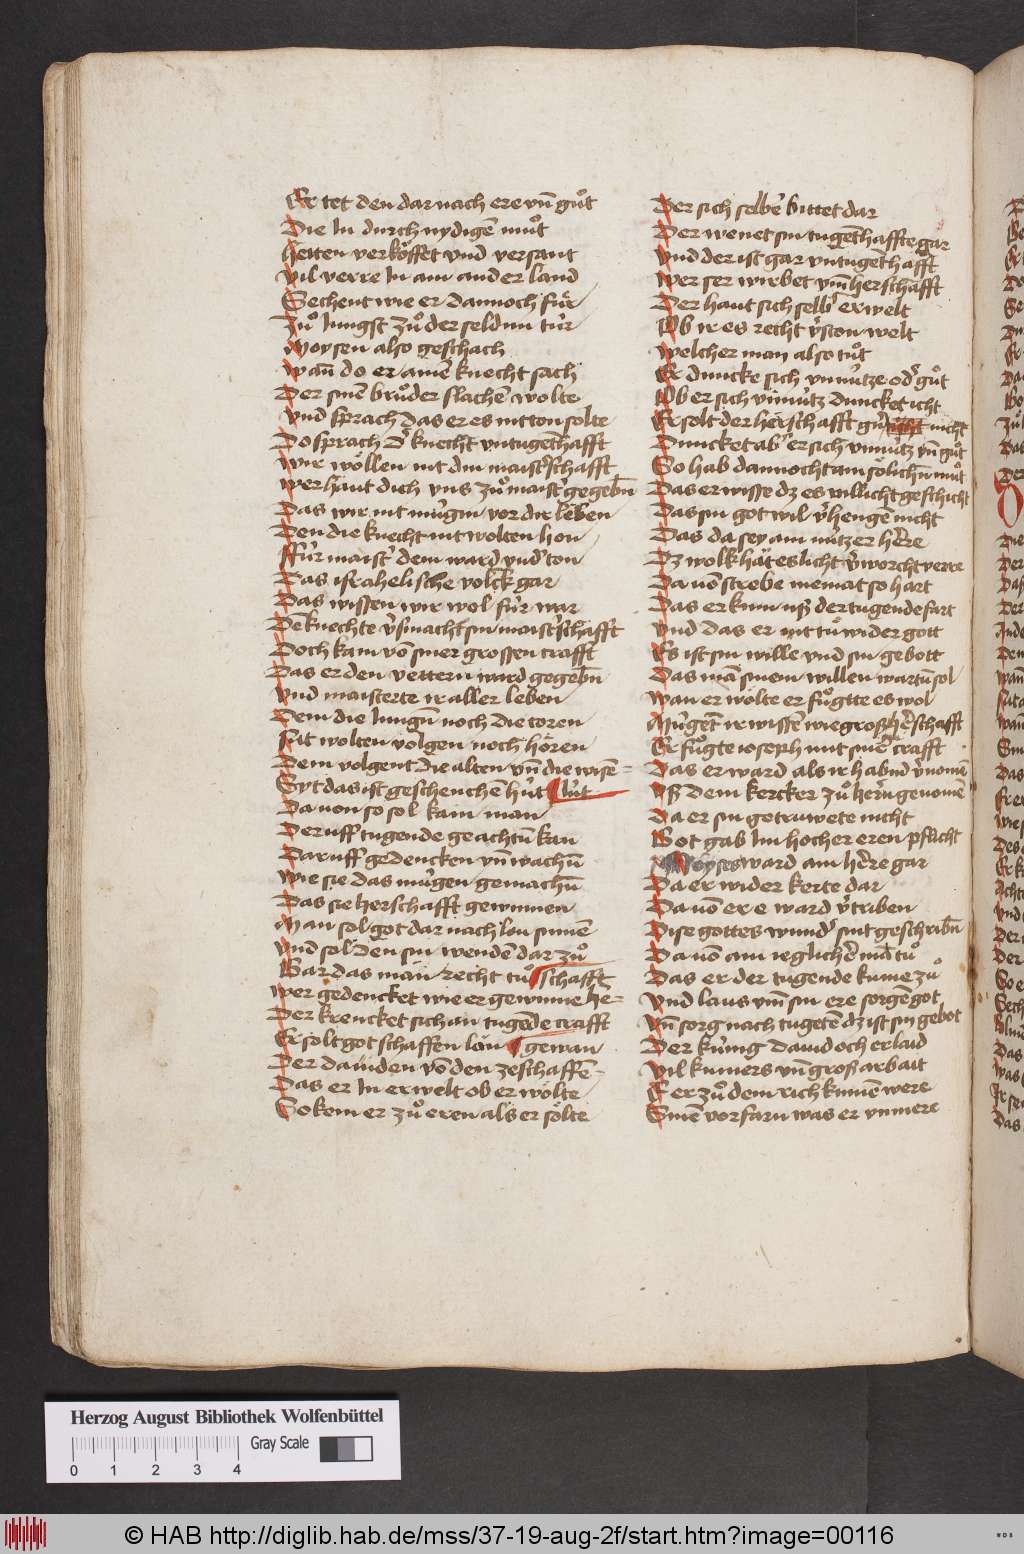 Er tet den dar nach ere vn̄ gůt
Die In durch nydigē můt
Hetten verkoͤffet vnd versant
Vil verre In ain ander land
Sechent wie er dannoch fuͤr
Zů Iungst zů der seldnn tuͤr
Moysen also geschach
Wan̄ do er ainē knecht sach
Der sinē bruͦder slachē wolte
Vnd sprach das er es nit ton solte
Do sprach d' knecht vntugēthafft
Wir woͤllen nit din maist'schafft
Wer haͤut dich vns zů maist' gegebn̄
Das wir nit muͤgin vor dir leben
Den die knecht nit wolten hon
Fuͤr maist' dem ward vnd' ton
Das israhelische volck gar
Das wissen wir wol fuͤr war
Dē knechte v'smacht sin maist'schafft
Doch kam vō siner grossen crafft
Das er den vettern ward gegebn̄
Vnd maisterte ir aller leben
Dem die Iungn̄ noch die toren
Nit wolten volgen noch hoͤren
Dem volgent die alten vn̄ die wisē
Syt das ist geschenchē hut
lút
Da von so sol kain man
Der vff tugende geachtn̄ kan
Dar vff gedencken vn̄ wachn̄
Wie sie das muͤgen gemachn̄
Das sie herschafft gewinnen
Man sol got dar nach lon sinnē
Vnd sol den sin wendē dar zů
Gar das man recht tů
schafft
Wer gedencket wie er gewinne he-
Der krencket sich an tugēde crafft
Er solt got schaffen lān
gewan
Der dauiden vō den ze schaffē
Das er In erwelt ob er woͤlte
So kem er zů eren als er soͤlte
Der sich selbē bittet dar
Der wenet sin tugēthaffte gar
Vnd der ist gar vntugēthafft
Wer ser wirbet vm̄ herschafft
Der haut sich selb' erwelt
Ob ir es recht v'ston welt
Welcher man also tůt
Er duncke sich vnnuͤtze od' gůt
Ob er sich vnnuͤtz duncket icht
Er solt der herschafft gern nicht
Duncket ab' er sich vnnuͤtz vn̄ gůt
So hab dannocht ain soͤlichn̄ můt
Das er wisse dz es villicht geschicht
Das sin got wil v'hengē nicht
Das da sey ain nuͤtzer h're
Dz volk haͤtes licht v'worcht verre
Da vō strebe niemat so hart
Das er kum vß der tugende fart
Vnd das er nit tuͤ wider gott
Es ist sin wille vnd sin gebott
Das mā sinem willen wartn̄ sol
Wan er woͤlte er fuͦgtte es wol
Muͤgēt ir wissē wie groß h'schafft
Er fuͦgte ioseph mit sinē crafft
Das er ward als ir habnd v'nomē
Vß dem kercker zů hern genomē
Da er sin getruwete nicht
Got gab Im hocher eren pflicht
Moyses ward ain h're gar
Da er wider kerte dar
Da vō er e ward v'triben
Dise gottes wund' sint geschribn̄
Da vō ain ieglichē mā tů
Das er der tugende kume zů
Vnd laus vm̄ sin ere sorgē got
Vn̄ sorg nach tugetē dz ist sin gebot
Der kuͤnig dauid och erlaid
Vil kumers vn̄ groß arbait
E er zů dem rich kumē were
Sinē vorfarn was er vnmere
Herzog August Bibliothek Wolfenbüttel
Gray Scale
0 1 2 3 4
© HAB http://diglib.hab.de/mss/37-19-aug-2f/start.htm?image=00116